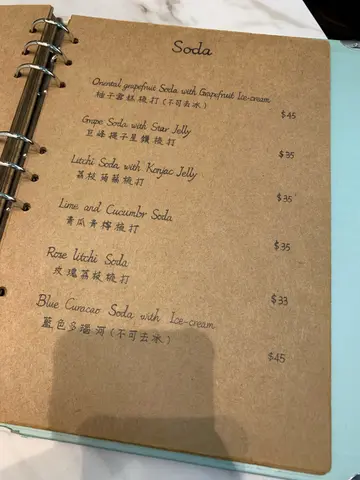 Soda
Oriental grapefruit Soda with Grapefruit Ice-cream
柚子雪糕梳打(不可去冰)
$45
Grape Soda with Star Jelly
巨峰提子星鑽梳打
$35
Litchi Soda with Konjac Jelly
荔枝蒟蒻梳打
$35
Lime and Cucumbr Soda
青瓜青檸梳打
$35
Rose litchi Soda
玫瑰荔枝梳打
$33
Blue Curacao Soda with Ice-cream
藍色多瑙河(不可去冰)
$45